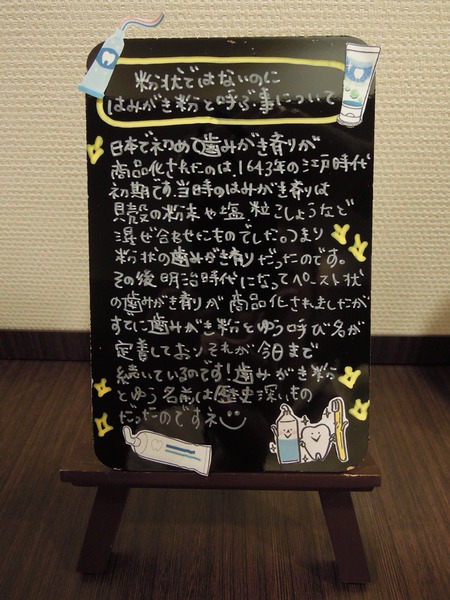 粉状ではないのに
はみがき粉と呼ぶ事について
日本で初めて歯みがき剤りが
商品化されたのは、1643年の江戸時代
初期です。当時のはみがき剤りは
貝殻の粉末や塩、粒こしょうなど
混ぜ合わせたものでした。つまり
粉状の歯みがき剤りだったのです。
その後明治時代になってペースト状
の歯みがき剤りが商品化されましたが
すでに歯みがき粉とゆう呼び名が
定着しておりそれが今日まで
続いているのです!歯みがき粉
とゆう名前は歴史深いもの
だったのですネ